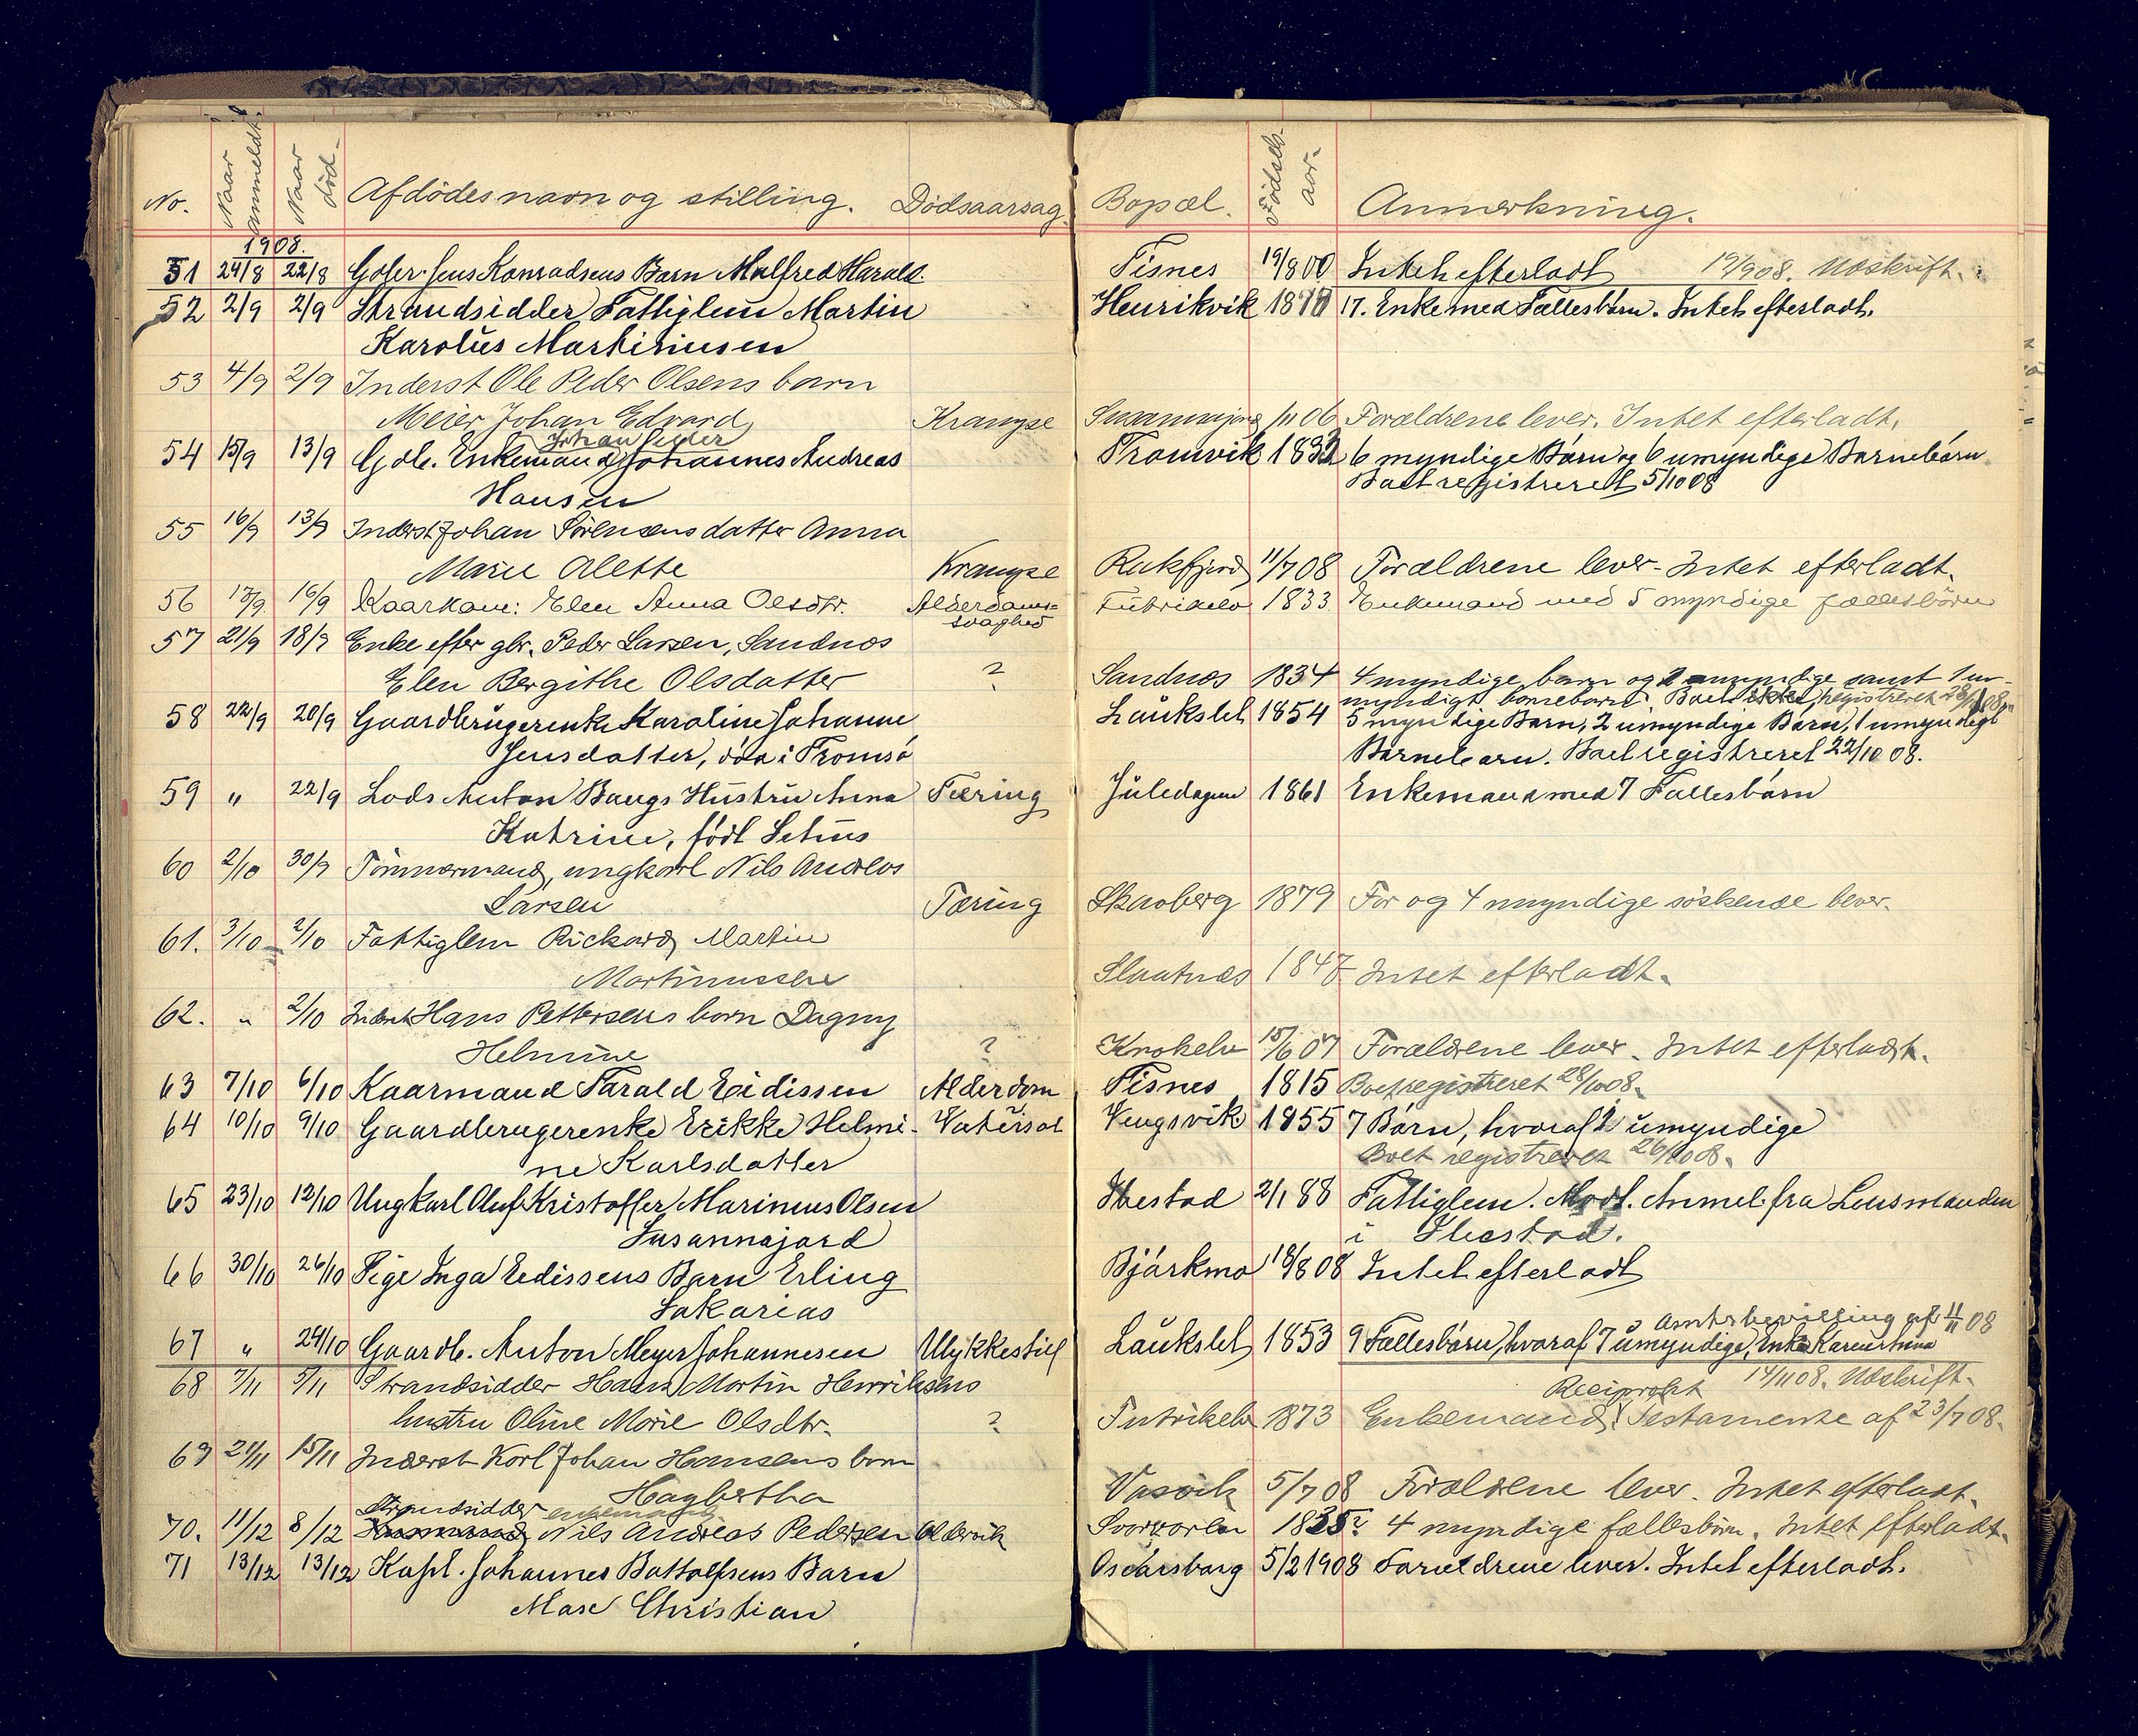 No. Naar anmeldt. Naar död. Afdödes navn og stilling. Dödsaarsag. Bopæl. Födsels- aar. Anmerkning.
1908.
51 24/8 22/8 Gbr. Jens Konradsens Barn Malfred Harald. Tisnes 19/8 00 Intet efterladt 19/9 08. Udskrift.
52 2/9 2/9 Strandsidder Fattiglem Martin Henrikvik 17. Enke med Fællesbörn. Intet efterladt.
Karolus Martinusen
53 4/9 2/9 Inderst Ole Peder Olsens barn
Meier Johan Edvard Krampe 06 Forældrene lever. Intet efterladt.
Johan Peder
54 15/9 13/9 Gbr. Enkemand Johannes Andreas Tromvik 1832 6 myndige Börn og 6 umyndige Barnebörn
Hansen Boet registreret 5/10 08
55 16/9 13/9 Inderst Johan Sörensens datter Anna
Marie Alette Krampe Rekfjord 11/7 08 Forældrene lever. Intet efterladt.
56 18/9 16/9 Kaarkone: Elen Anna Olsdtr. Alderdoms- Futrikelv 1833 Enkemand med 5 myndige fællesbörn
svaghed
57 21/9 18/9 Enke efter gbr. Peder Larsen, Sandnes
Elen Bergithe Olsdatter ? Sandnes 1834 4 myndige barn og 2 umyndige samt 1 um-
myndigt barnebarn. Boet registreret
58 22/9 20/9 Gaardbrugerenke Karoline Johanne Laukslet 1854 5 myndige Barn, 2 umyndige Barn, 1 umyndigt
Jensdatter, död i Tromsö Barnebarn. Boet registreret 22/10 08.
59 " 22/9 Lods Anton Bangs Hustru Anna Tæring Juledagen 1861 Enkemand med 7 Fællesbörn
Katrine, födt Setius
60 2/10 30/9 Tömmermand, ungkarl Nils Andreas
Larsen Tæring Skavberg 1879 Far og 4 myndige söskende lever.
61. 3/10 2/10 Fattiglem Rickard Martin
Martinussen Slaatnæs 1847 Intet efterladt.
62. " 2/10 Inderst Hans Pettersens barn Dagny
Helmine ? Krokelv 15/6 07 Forældrene lever. Intet efterladt.
63 7/10 6/10 Kaarmand Tarald Eidissen Alderdom Tisnes 1815 Boet registreret 28/10 08.
64 10/10 9/10 Gaardbrugerenke Erikke Helmi- Vatersot Vengsvik 1855 7 Börn, hvoraf 2 umyndige
ne Karlsdatter Boet registreret 26/10 08.
65 23/10 12/10 Ungkarl Oluf Kristoffer Marinus Olsen Ibestad 2/1 88 Fattiglem. Modt. Anmel. fra Lensmanden
Susannajord i Ibestad.
66 30/10 26/10 Pige Inga Eedissens Barn Erling Bjårkmo 18/8 08 Intet efterladt
Sakarias
Amtsbevilling af 4/11 08
67 " 24/10 Gaardb. Anton Meyer Johannesen Ulykkestil Laukslet 1853 9 Fællesbörn, hvoraf 7 umyndige, Enke Karen Anna
14/11 08. Udskrift.
68 7/11 5/11 Strandsidder Hans Martin Henriksens
Reciprokt
hustru Oline Marie Olsdtr. ? Futrikelv 1873 Enkemand, Testamente af 23/7 08.
69 21/11 15/11 Inderst Karl Johan Hansens barn
Hagbertha Vasvik 5/7 08 Forældrene lever. Intet efterladt.
Strandsidder enkemand
70. 11/12 8/12 Nils Andreas Pedersen Oldervik 1835? 4 myndige fællesbörn. Intet efterladt.
71 13/12 13/12 Kapt. Johannes Bottolfsens Barn Oscarsborg 5/2 1908 Forældrene lever. Intet efterladt.
Mare Christian